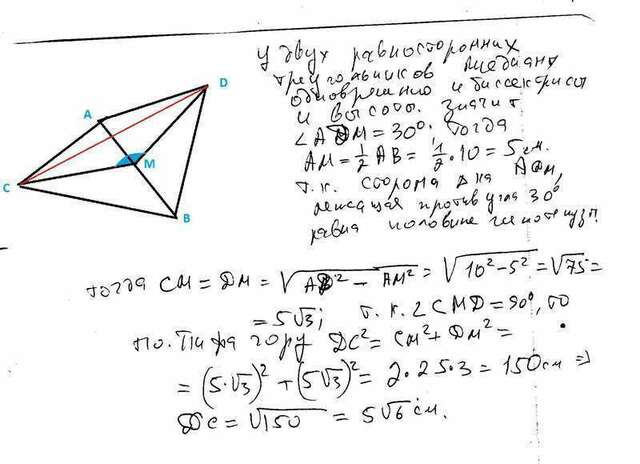 У двух равносторонних
треугольников медианы
одновременно и биссектрисы
и высоты. значит
∠ADM = 30°. Тогда
AM = 1/2 AB = 1/2 · 10 = 5 см.
т.к. сторона
лежащая против угла 30°
равна половине гипотенузы.
D
A
M
C
B
тогда CM = DM = √(AD² − AM²) = √(10² − 5²) = √75 =
= 5√3; т.к. ∠CMD = 90°, то
по. Пифагору DC² = CM² + DM² =
= (5·√3)² + (5√3)² = 2·25·3 = 150 см ⇒
DC = √150 = 5√6 см.